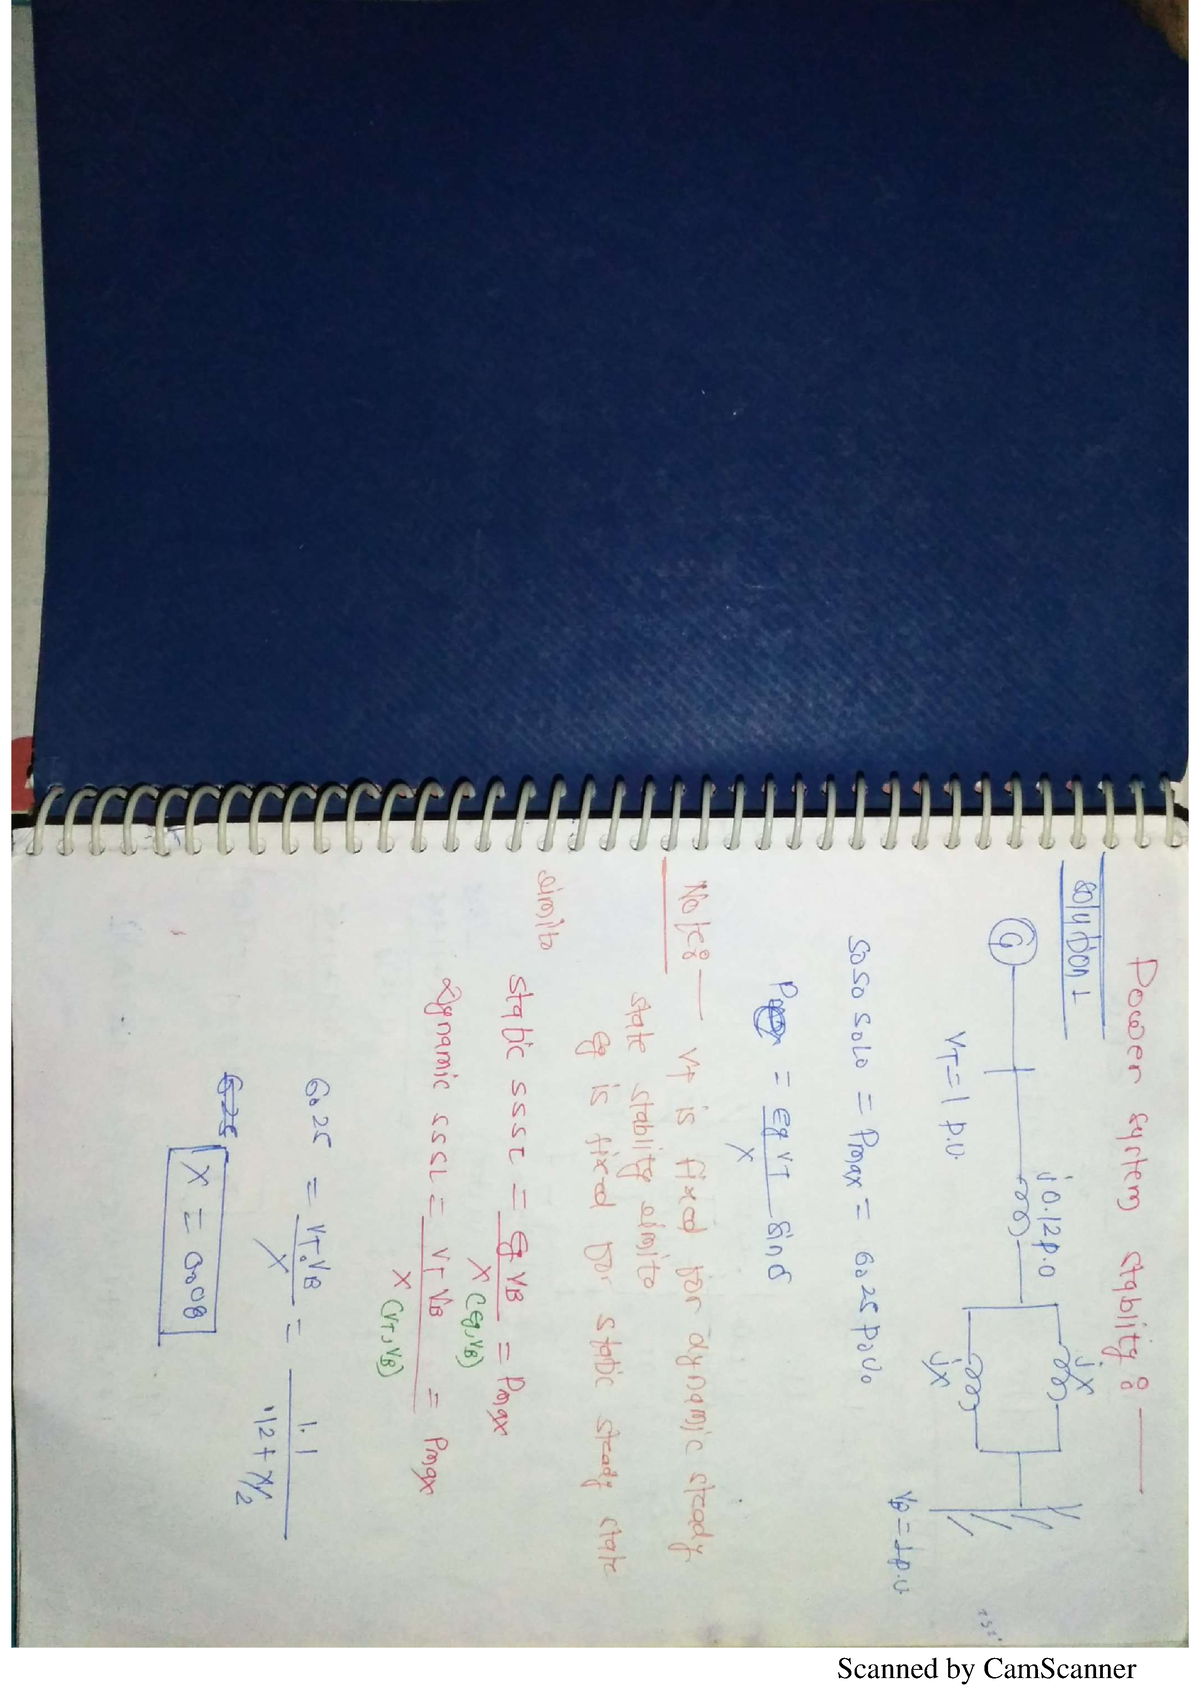 Power system stablity :—
solution 1
G
VT=1 p.u.
j0.12p.u
jx
jx
VB = 1p.u
S.S.S.L. = Pmax = 6.25 p.u.
P = EgVT sinδ
X
Note:— Vt is fixed for dynamic steady
state stablity limits
Eg is fixed for static steady state
limits
static SSSL = Eg VB = Pmax
X (Eg,VB)
Dynamic SSSL = VT VB = Pmax
X (VT,VB)
6.25 = VT.VB = 1.1
X .12+x/2
6.25
X = 0.08
Scanned by CamScanner